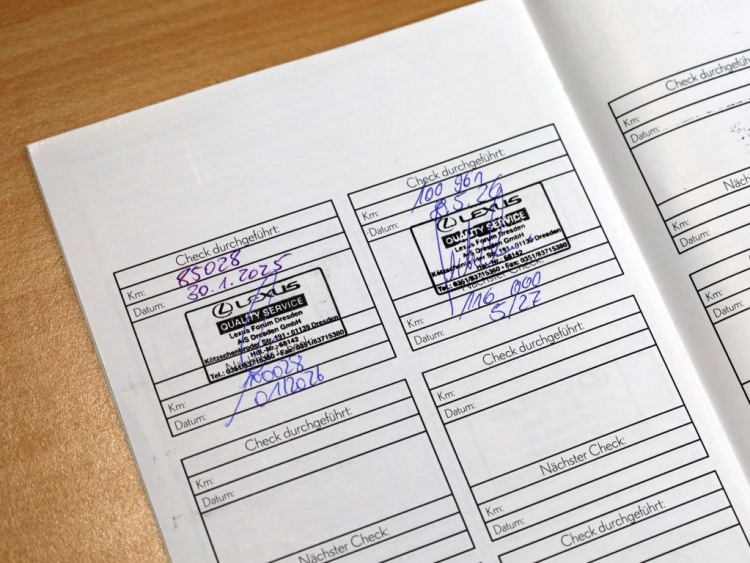 Check durchgeführt:
Km: 85028
Datum: 30.1.2025
LEXUS
QUALITY SERVICE
Lexus Forum Dresden
AIS Dresden GmbH
Kötzschenbroder Str. 191 • 01139 Dresden
Hdl.-Nr.: 68142
Tel.: 0351/83715360 • Fax: 0351/83715380
Km: 100028
Datum: 01/2026
Check durchgeführt:
Km:
Datum:
LEXUS
QUALITY SERVICE
Lexus Forum Dresden
AIS Dresden GmbH
Kötzschenbroder Str. 191 • 01139 Dresden
Hdl.-Nr.: 68142
Tel.: 0351/83715360 • Fax: 0351/83715380
Nächster Check:
Km: 116 000
Datum: 5/27
Check durchgeführt:
Km:
Datum:
Nächster Check:
Check durchgeführt:
Km:
Datum:
Nächster Check:
Km:
Datum:
Check durchgeführt:
Check durchgeführt
Km:
Datum:
Km:
Datum:
Km:
Datum: